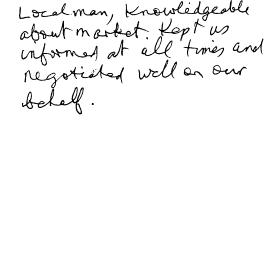 Local man, Knowledgeable
about market. Kept us
informed at all times and
negotiated well on our
behalf.